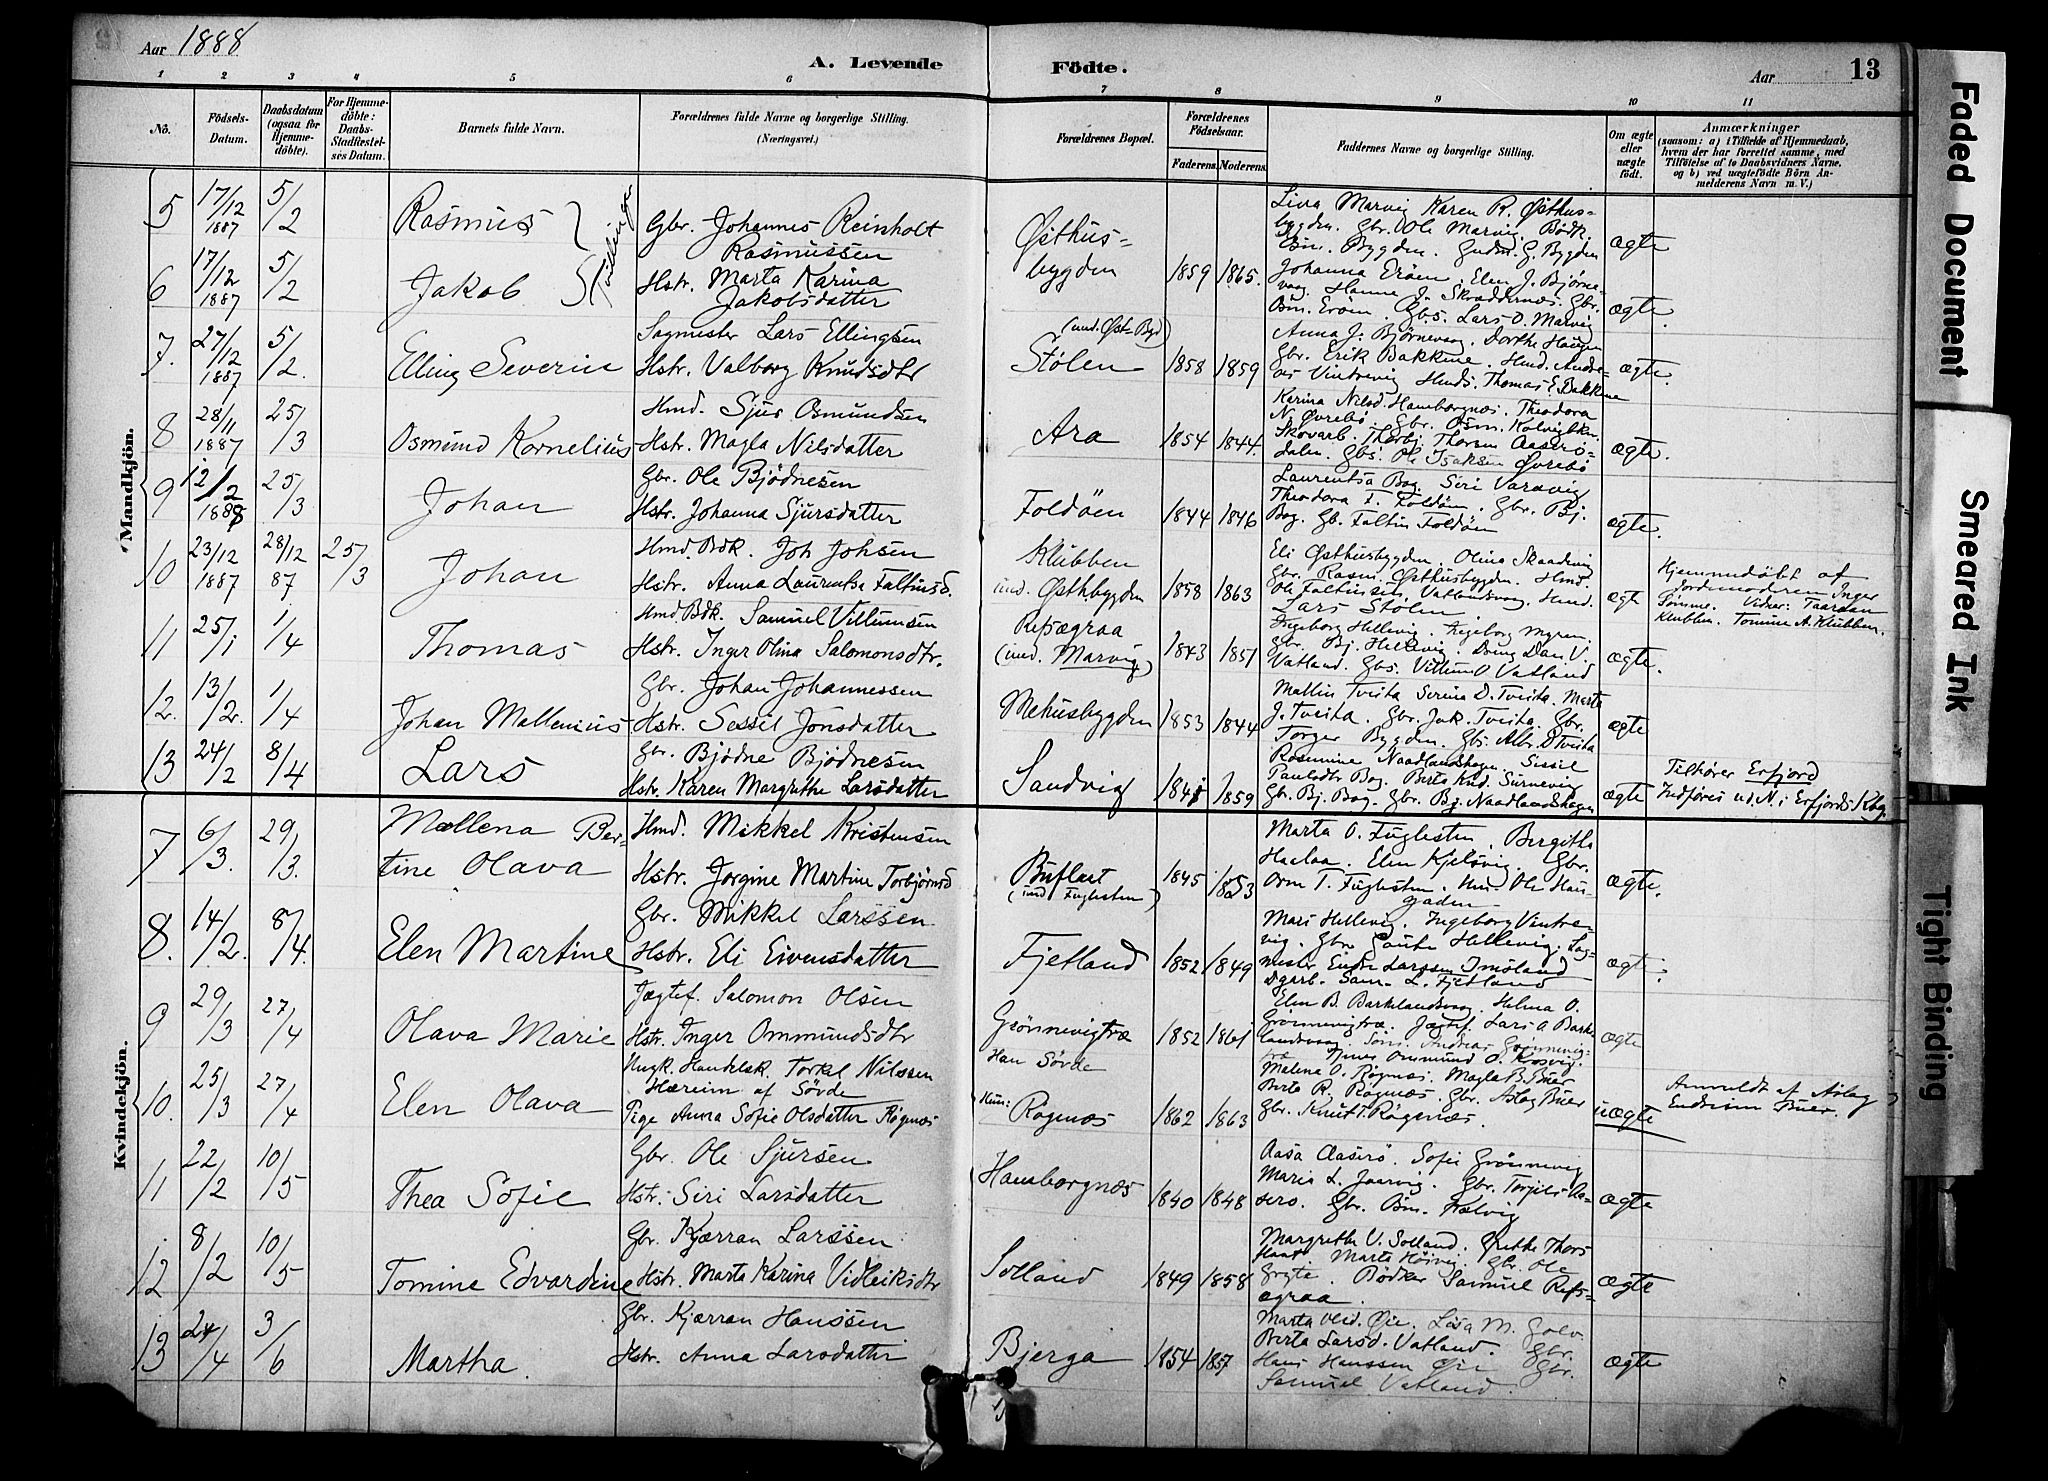 Aar 1888
A. Levende Födte.
Aar 13
1 2 3 4 5 6 7 8 9 10 11
No.
Födsels-Datum.
Daabsdatum (ogsaa for Hjemme-döbte).
For Hjemme-döbte: Daabs-Stadfæstel-ses Datum.
Barnets fulde Navn.
Forældrenes fulde Navne og borgerlige Stilling.
(Næringsvei.)
Forældrenes Bopæl.
Forældrenes Födselsaar.
Faderens. Moderens.
Faddernes Navne og borgerlige Stilling.
Om ægte eller uægte födt.
Anmærkninger
(saasom: a) i Tilfælde af Hjemmedaab,
hvem der har forrettet samme, med
Tilföielse af to Daabsvidners Navne,
og b) ved uægtefödte Börn An-
melderens Navn m. V.)
Mandkjön.
5 17/12 1887 5/2 Rasmus Tvillinge Gbr. Johannes Reinholt
Rasmussen
Østhus-
bygden
ægte
6 17/12 1887 5/2 Jakob Hstr. Marta Karina
Jakobsdatter
1859 1865.
Liva Marvig Karen R. Østhus-
bygden. Gbr. Ole Marvig. Bødk.
Johanna Erøen. Elen J. Bjørne-
vaag. Hanne J. Skræddernæs. Gbr.
Osm. Erøen. Gbs. Lars O. Marvig
ægte.
7. 27/12 1887 5/2. Elling Severin Sagmester Lars Ellingsen
Hstr. Valborg Knudsdtr
(und. Øst-Byd)
Stølen 1858 1859
Anna J. Bjørnevaag. Dorthe Haugen
Gbr. Erik Bakkene. Hmd. Andre-
as Vintrevig Hmds. Thomas E. Bakkene
ægte.
8 28/11 1887 25/3 Osmund Kornelius Hmd. Sjur Osmundsen
Hstr. Magla Nilsdatter
Ara 1854 1844.
Karina Nilsd. Hamborgnæs. Theodora
N. Øvrebø. Gbr. Osm. Kolvig
Skovarb. Thorbj. Thorsen Aaserø-
dalen. Gbs. Ole Isaksen Øvrebø
ægte.
9 12/2 1888 25/3 Johan Gbr. Ole Bjødnesen
Hstr. Johanna Sjursdatter
Foldøen 1844 1846
Laurentsa Bog. Siri Varavig
Theodora F. Foldøen. Gbr. Bj.
Bog. Gb. Faltin Foldøen
ægte.
10 23/12 1887 28/12 87 25/3 Johan Hmd. Bdk. Joh Johsen
Hstr. Anna Laurentse Faltinsd.
Klubben
und. Østhbygden 1858 1863
Eli Østhusbygden. Olina Skaadevig
Gbr. Rasm. Østhusbygden. Hmd.
Ole Faltinsen, Vatlandsvaag. Hmd.
Lars Stølen
ægte
Hjemmedøbt af
Jordemoderen Inger
Sømme. Vidner: Taardan
Klubben. Tomine A. Klubben.
11 25/1 1/4 Thomas Hmd. Bdk. Samuel Villumsen
Hstr. Inger Olina Salomonsdtr.
Refsægraa
(und. Marvig) 1843 1851
Ingeborg Hellevig. Ingeborg Myren.
Gbr. Bj. Hellevig. Dreng Dan. V.
Vatland. Gbs. Villum O Vatland
ægte.
12. 13/2. 1/4 Johan Mallenius Gbr. Johan Johannessen
Hstr. Sessil Jonsdatter
Mehusbygden 1853 1844
Mallin Tveita Serina D. Tveita. Marta
J. Tveita. Gbr. Jak. Tveita. Gbr.
Torger Bygden. Gbs. Albr. D Tveita
ægte
13 24/2 8/4 Lars Gbr. Bjødne Bjødnesen
Hstr. Karen Margrethe Larsdatter
Sandvig 1859
Rasmine Naadlandshagen. Sissil
Paulsdtr Bog. Berta Knd. Survevig
Gbr. Bj. Bog. Gbr. Bj. Naadlandshagen
ægte
Tilhører Erfjord
Indføres ud. N. i Erfjords Kbog.
Kvindekjön.
7 6/3. 29/3. Mallena Ber-
tine Olava
Hmd. Mikkel Kristensen
Hstr. Jorgine Martine Torbjørnsd
Buflaet
(und Fuglesten) 1845 1853
Marta O. Fuglesten. Birgitha
Haalaa. Elen Kjelsvig. Gbr.
Orm T. Fuglesten. Um. Ole Hau-
gaden
ægte.
8. 14/2. 8/4. Elen Martine Gbr. Mikkel Larssen
Hstr. Eli Eivensdatter
Fjetland 1852 1849
Mari Hellevig. Ingeborg Vintre-
vig. Gbr. Gaute Hellevig. Sag-
mester Endre Larssen Imsland
Dgarb. Sam. L. Fjetland
ægte.
9 29/3 27/4 Olava Marie Jægtef. Salomon Olsen
Hstr. Inger Ommundsdtr
Grønnevigtræ 1852 1861
Elen B. Barklandsvaag. Helma O.
Grønnevigtræ. Jægtef. Lars O. Barke-
landsvaag. Søm. Andreas Grønnevig-
træ. Ommund O. Kosvig.
ægte
10. 25/3 27/4 Elen Olava Ungk. Handelsk. Torkel Nilssen
Hæreim af Søvde
Pige Anna Sofie Olsdatter Røgnæs
Han Søvde
Hun: Røgnæs 1862 1863
Malena O. Røgnæs. Magla B. Buer
Berte R. Røgnæs. Gbr. Aslag Buer
Gbr. Knut T. Røgenæs.
uægte
Anmeldt af Aslag
Endresen Buer.
11 22/2 10/5 Thea Sofie Gbr. Ole Sjursen
Hstr. Siri Larsdatter
Hamborgnæs 1840 1848
Aasa Aaserø. Sofie Grønnevig
Maria L. Jaarvig. Gbr. Torjeis Aa-
serø. Gbr. Bm. Kalvig
ægte
12 8/2 10/5 Tomine Edvardine Gbr. Kjærran Larssen
Hstr. Marta Karina Vidleiksdtr
Solland 1849 1858
Margrethe V. Solland. Grethe Thors
Marta Høivig. Gbr. Ole
Gryte. Bødker Samuel Refs-
ægraa.
ægte
13 24/4 3/6 Martha. Gbr. Kjærran Hanssen
Hstr. Anna Larsdatter
Bjerga 1854 1857
Marta Øie. Lisa M. Golv.
Berta Larsd. Vatland. Gbr.
Hans Hanssen Øie Gbr.
Samuel Vatland.
ægte
Faded Document
Smeared Ink
Tight Binding